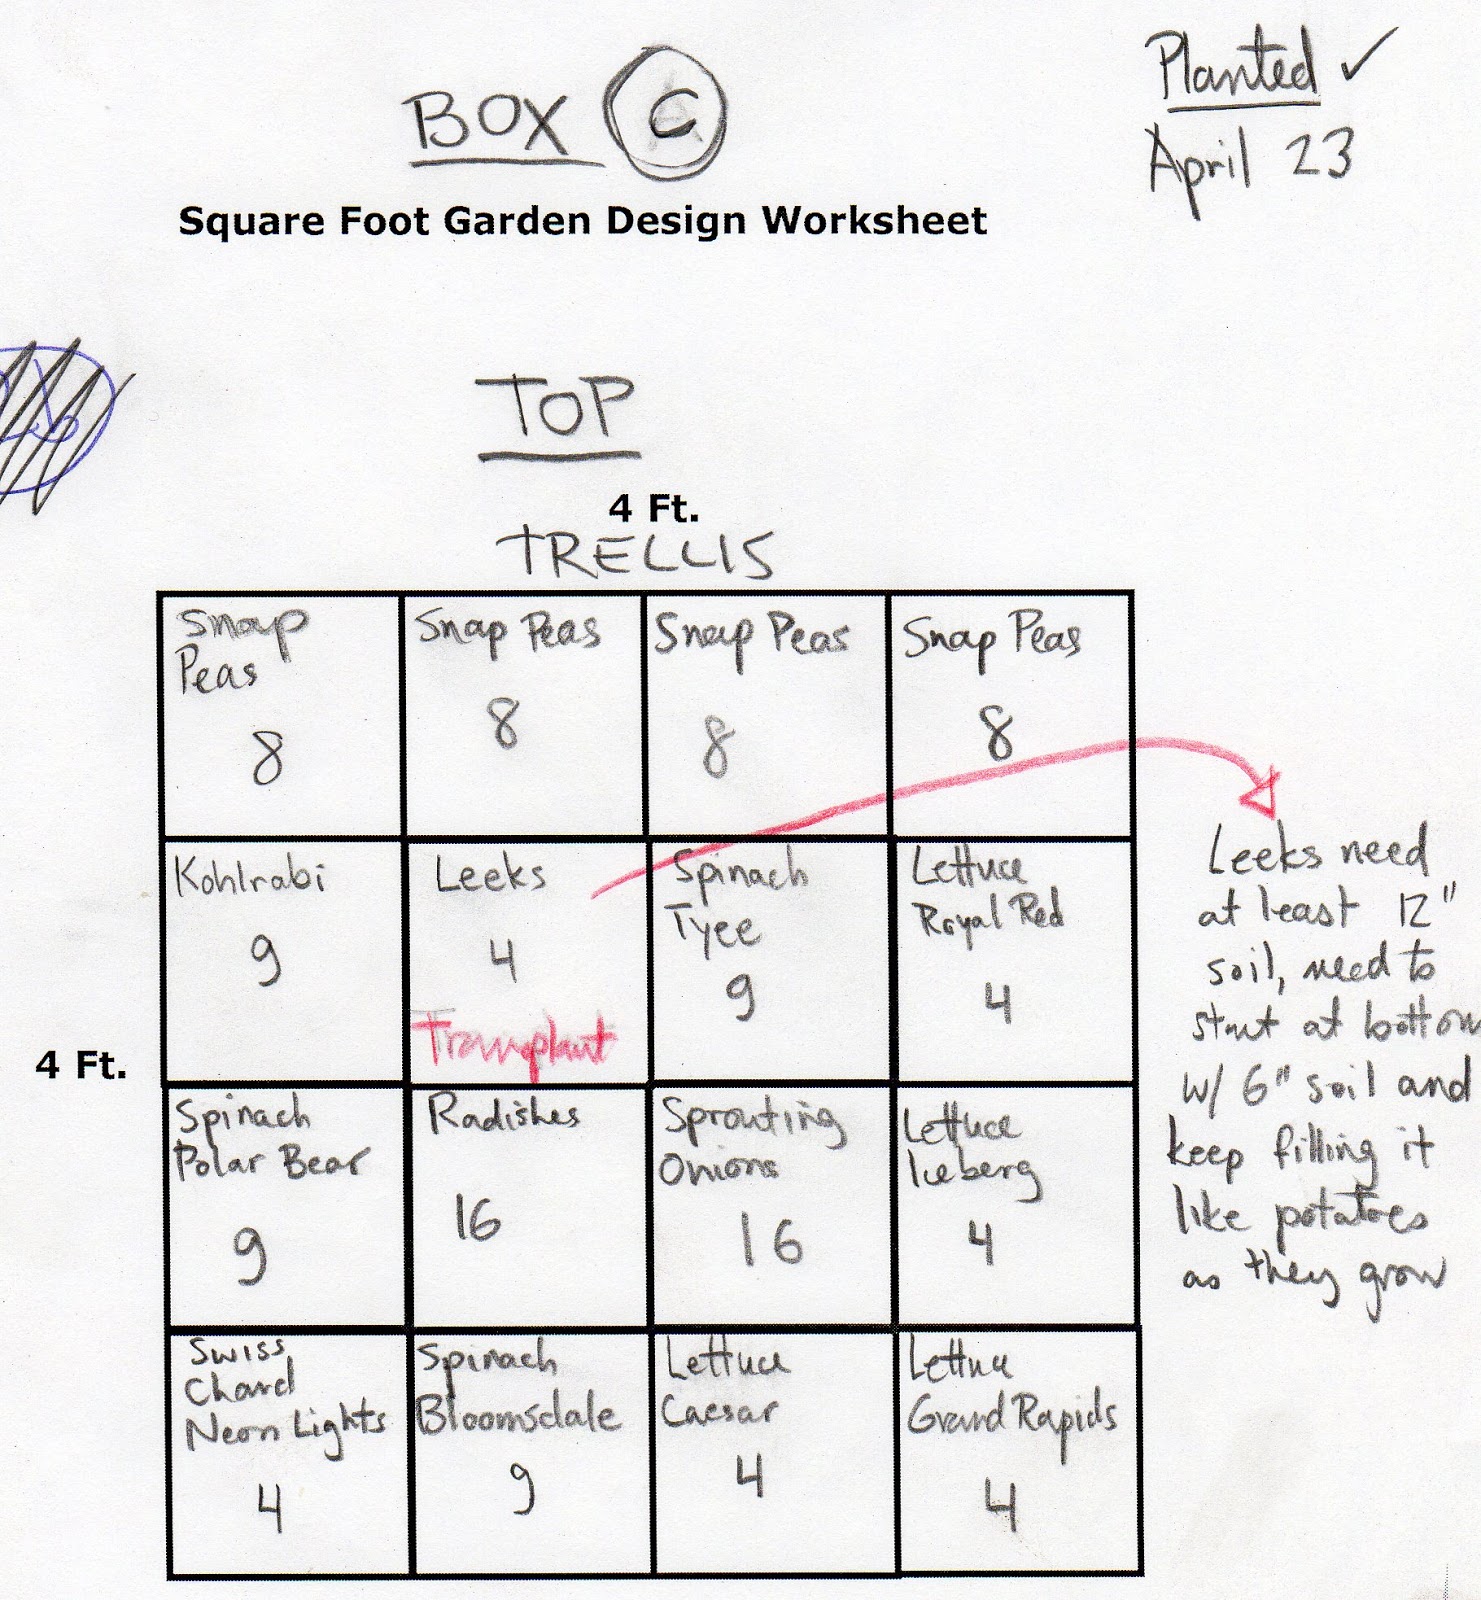 Planted ✓
April 23
BOX C
Square Foot Garden Design Worksheet
TOP
4 Ft.
TRELLIS
Snap
Peas
8
Snap Peas
8
Snap Peas
8
Snap Peas
8
Kohlrabi
9
Leeks
4
Transplant
Spinach
Tyee
9
Lettuce
Royal Red
4
Leeks need
at least 12"
soil, need to
start at bottom
w/ 6" soil and
keep filling it
like potatoes
as they grow
4 Ft.
Spinach
Polar Bear
9
Radishes
16
Sprouting
Onions
16
Lettuce
Iceberg
4
Swiss
Chard
Neon Lights
4
Spinach
Bloomsdale
9
Lettuce
Caesar
4
Lettuce
Grand Rapids
4